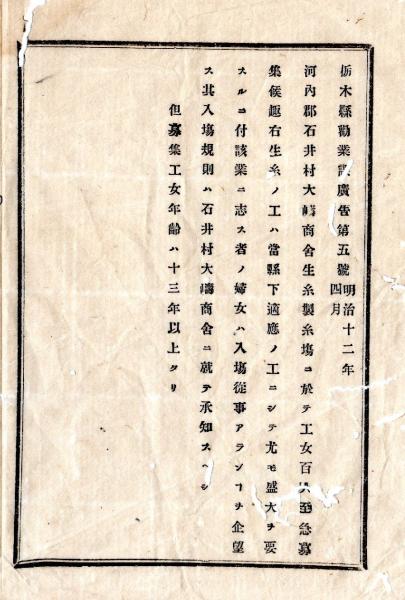 栃木縣勸業課廣告第五號 明治十二年四月
河內郡石井村大嶹商舍生糸製糸塲ニ於テ工女百人至急募
集候趣右生糸ノ工ハ當縣下適應ノ工ニシテ尤モ盛大ヲ要
スルニ付該業ニ志ス者ノ婦女ハ入塲從事アランヿヲ企望
ス其入塲規則ハ石井村大嶹商舍ニ就テ承知スヘシ
但募集工女年齡ハ十三年以上タリ